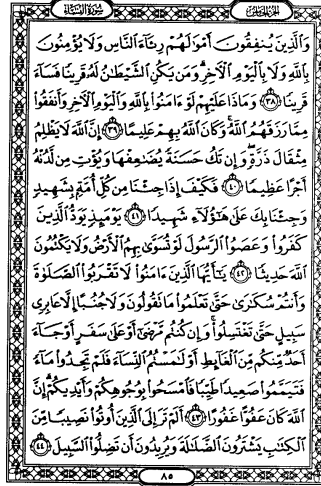 الجزء الخامس
سورة النساء
وَٱلَّذِينَ يُنفِقُونَ أَمْوَٰلَهُمْ رِئَآءَ ٱلنَّاسِ وَلَا يُؤْمِنُونَ
بِٱللَّهِ وَلَا بِٱلْيَوْمِ ٱلْءَاخِرِ وَمَن يَكُنِ ٱلشَّيْطَٰنُ لَهُۥ قَرِينًا فَسَآءَ
قَرِينًا ٣٨ وَمَاذَا عَلَيْهِمْ لَوْ ءَامَنُوا۟ بِٱللَّهِ وَٱلْيَوْمِ ٱلْءَاخِرِ وَأَنفَقُوا۟
مِمَّا رَزَقَهُمُ ٱللَّهُ وَكَانَ ٱللَّهُ بِهِمْ عَلِيمًا ٣٩ إِنَّ ٱللَّهَ لَا يَظْلِمُ
مِثْقَالَ ذَرَّةٍ وَإِن تَكُ حَسَنَةً يُضَٰعِفْهَا وَيُؤْتِ مِن لَّدُنْهُ
أَجْرًا عَظِيمًا ٤٠ فَكَيْفَ إِذَا جِئْنَا مِن كُلِّ أُمَّةٍۭ بِشَهِيدٍ
وَجِئْنَا بِكَ عَلَىٰ هَٰٓؤُلَآءِ شَهِيدًا ٤١ يَوْمَئِذٍ يَوَدُّ ٱلَّذِينَ
كَفَرُوا۟ وَعَصَوُا۟ ٱلرَّسُولَ لَوْ تُسَوَّىٰ بِهِمُ ٱلْأَرْضُ وَلَا يَكْتُمُونَ
ٱللَّهَ حَدِيثًا ٤٢ يَٰٓأَيُّهَا ٱلَّذِينَ ءَامَنُوا۟ لَا تَقْرَبُوا۟ ٱلصَّلَوٰةَ
وَأَنتُمْ سُكَٰرَىٰ حَتَّىٰ تَعْلَمُوا۟ مَا تَقُولُونَ وَلَا جُنُبًا إِلَّا عَابِرِى
سَبِيلٍ حَتَّىٰ تَغْتَسِلُوا۟ وَإِن كُنتُم مَّرْضَىٰٓ أَوْ عَلَىٰ سَفَرٍ أَوْ جَآءَ
أَحَدٌ مِّنكُم مِّنَ ٱلْغَآئِطِ أَوْ لَٰمَسْتُمُ ٱلنِّسَآءَ فَلَمْ تَجِدُوا۟ مَآءً
فَتَيَمَّمُوا۟ صَعِيدًا طَيِّبًا فَٱمْسَحُوا۟ بِوُجُوهِكُمْ وَأَيْدِيكُمْ إِنَّ
ٱللَّهَ كَانَ عَفُوًّا غَفُورًا ٤٣ أَلَمْ تَرَ إِلَى ٱلَّذِينَ أُوتُوا۟ نَصِيبًا مِّنَ
ٱلْكِتَٰبِ يَشْتَرُونَ ٱلضَّلَٰلَةَ وَيُرِيدُونَ أَن تَضِلُّوا۟ ٱلسَّبِيلَ ٤٤
٨٥